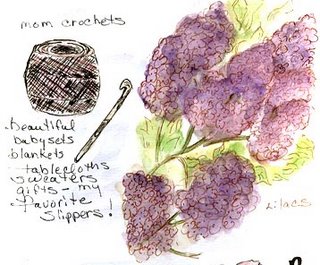 mom crochets
beautiful
babysets
blankets
tablecloths
sweaters
gifts - my
favorite
slippers!
Lilacs